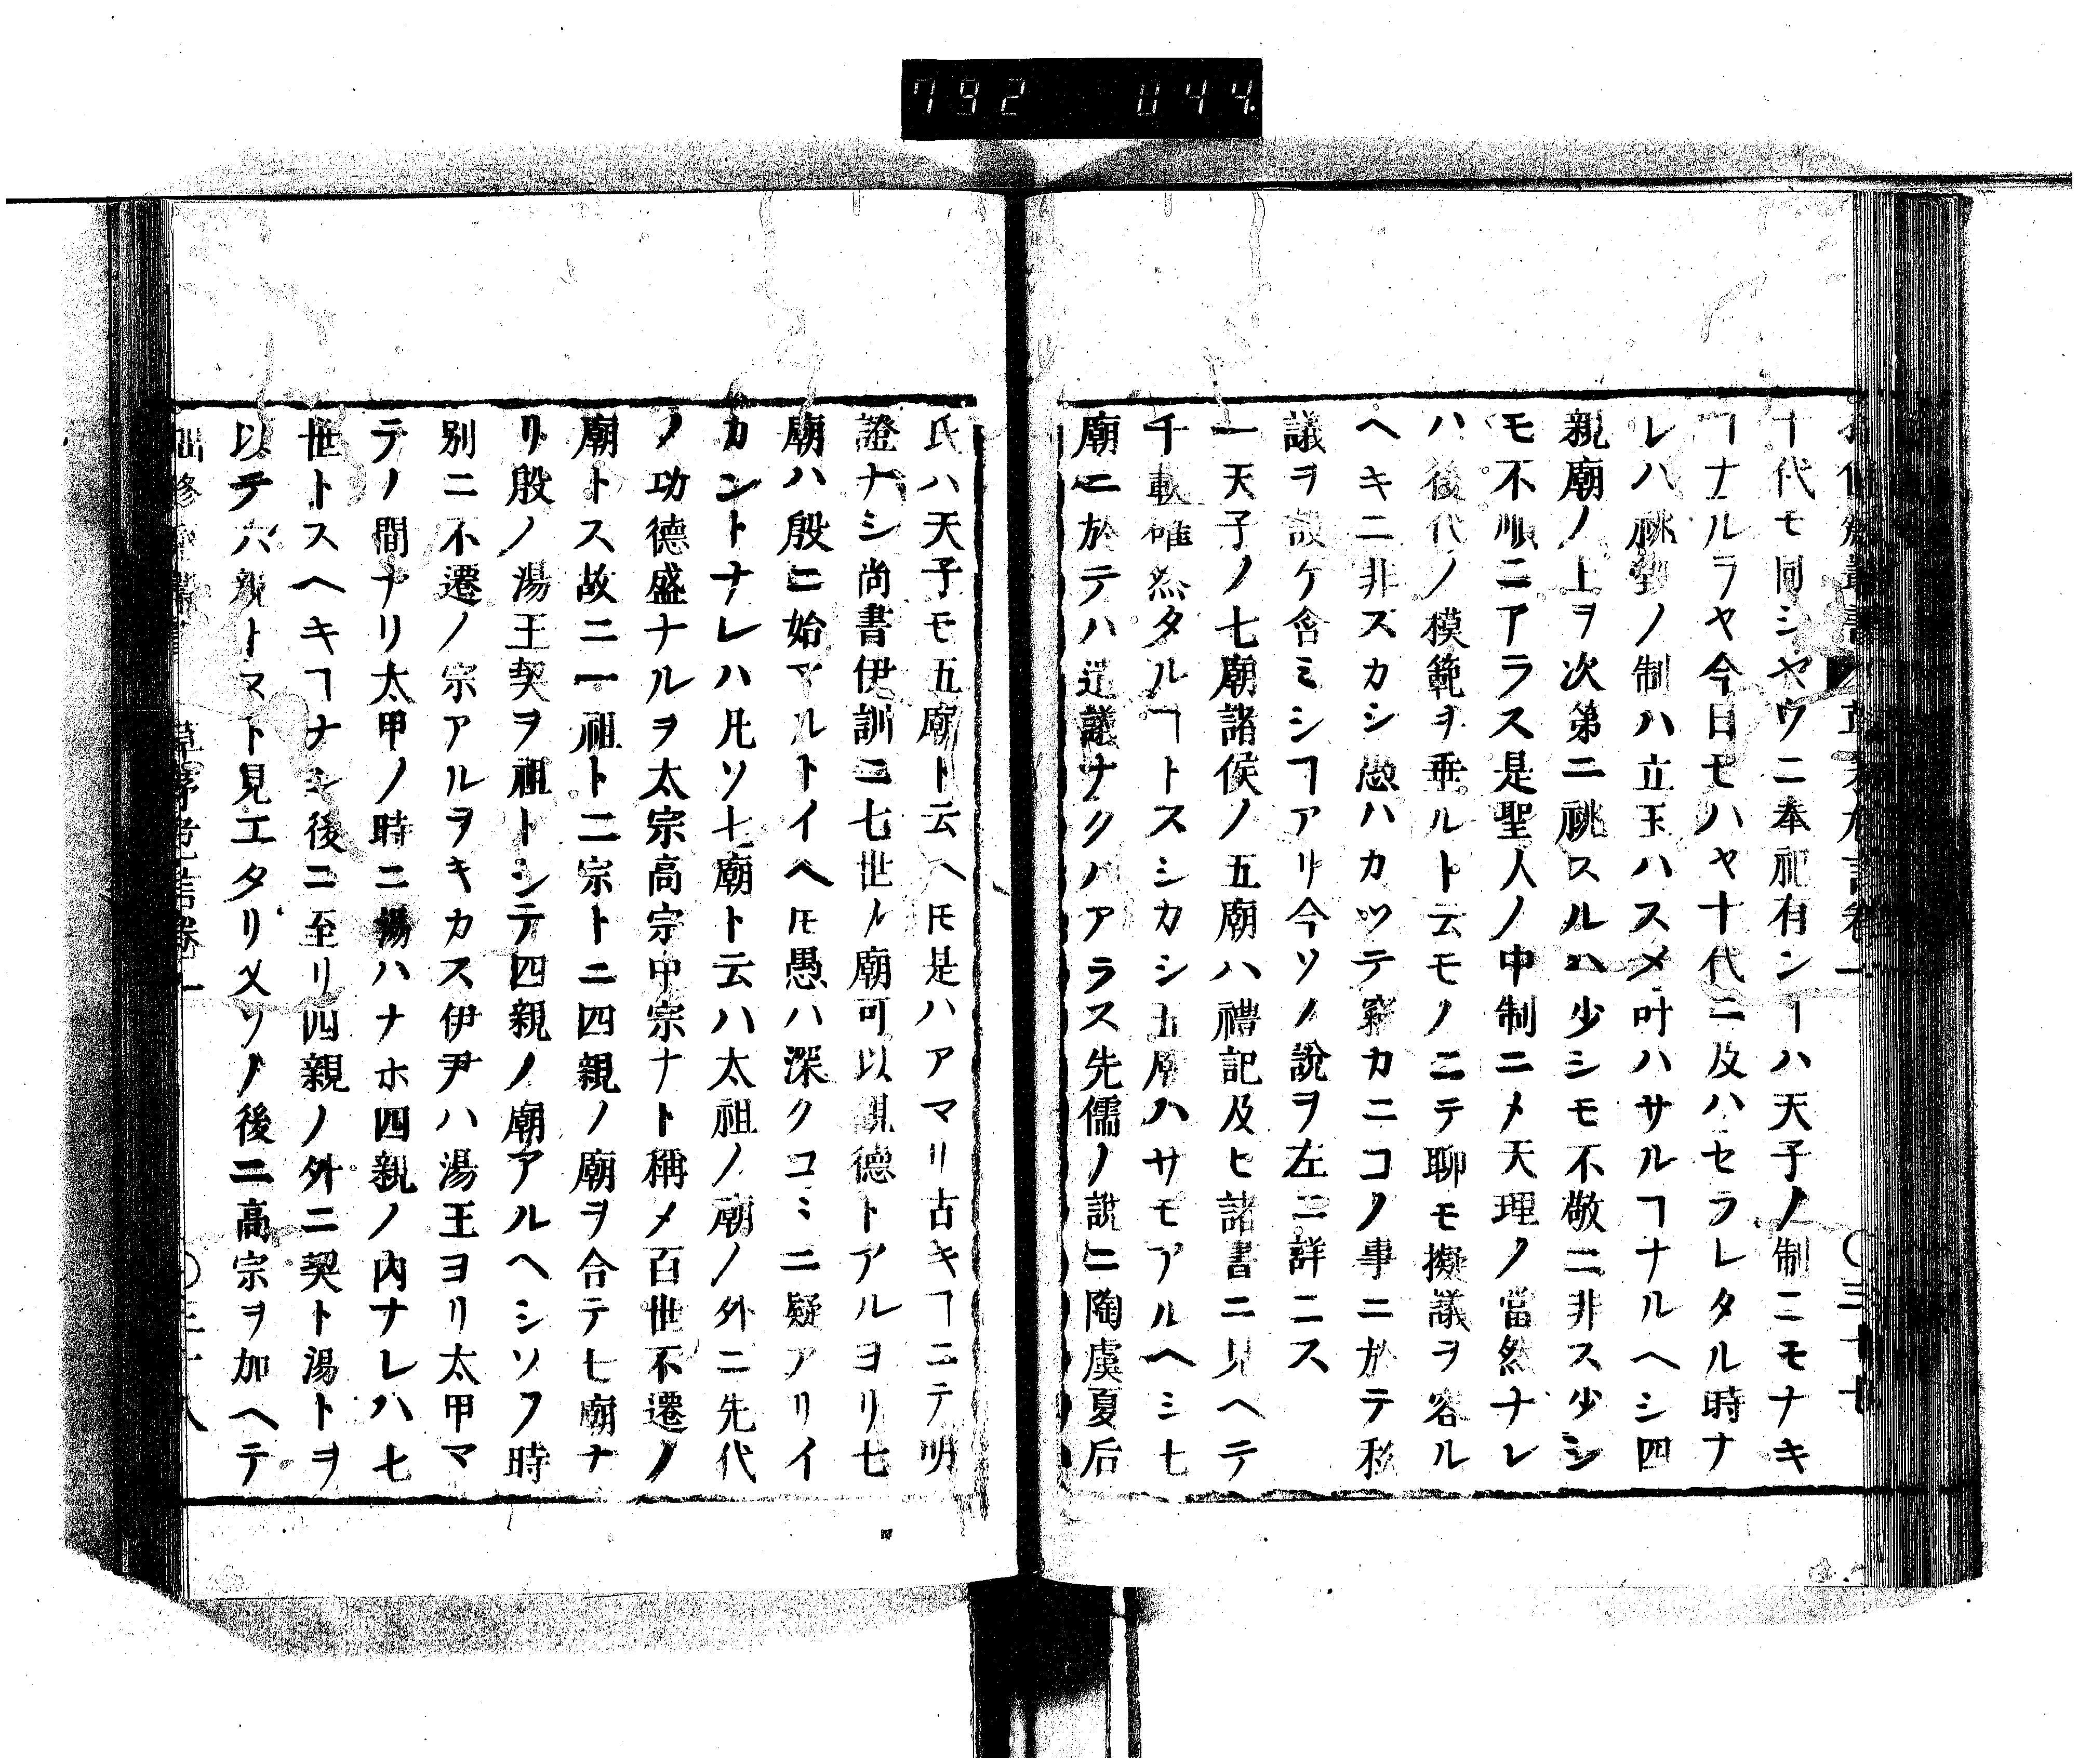 792 044
十代モ同シヤウニ奉祀有ンーハ天子ノ制ニモナキ
ヿナルラヤ今日モハヤ十代ニ及ハセラレタル時ナ
レハ祧ノ制ハ立玉ハスメ叶ハサルヿナルヘシ四
親廟ノ上ヲ次第ニ祧スルハ少シモ不敬ニ非ス少シ
モ不順ニアラス是聖人ノ中制ニメ天理ノ當然ナレ
ハ後代ノ模範ヲ垂ルト云モノニテ聊モ擬議ヲ容ル
ヘキニ非スカシ愚ハカツテ竊カニコノ事ニ於テ私
議ヲ設ケ含ミシヿアリ今ソノ說ヲ左ニ詳ニス
一天子ノ七廟諸侯ノ五廟ハ禮記及ヒ諸書ニ見ヘテ
千載確然タルヿトスシカシ五廟ハサモアルヘシ七
廟ニ於テハ異議ナクハアラス先儒ノ說ニ陶虞夏后
氏ハ天子モ五廟ト云ヘ𪜈是ハアマリ古キヿニテ明
證ナシ尚書伊訓ニ七世ノ廟可以觀德トアルヨリ七
廟ハ殷ニ始マルトイヘ𪜈愚ハ深クコヽニ疑アリイ
カントナレハ凡ソ七廟ト云ハ太祖ノ廟ノ外ニ先代
ノ功德盛ナルヲ太宗高宗中宗ナト稱メ百世不遷ノ
廟トス故ニ一祖ト二宗トニ四親ノ廟ヲ合テ七廟ナ
リ殷ノ湯王契ヲ祖トシテ四親ノ廟アルヘシソノ時
別ニ不遷ノ宗アルヲキカス伊尹ハ湯王ヨリ太甲マ
テノ間ナリ太甲ノ時ニ湯ハナホ四親ノ內ナレハ七
世トスヘキヿナシ後ニ至リ四親ノ外ニ契ト湯トヲ
以テ六親トスト見エタリ又ソノ後ニ高宗ヲ加ヘテ